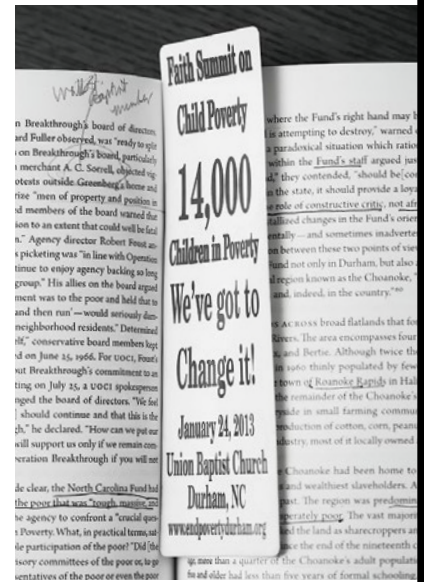 n Breakthrough's board of directors,
ard Fuller observed, was "ready to split
on Breakthrough's board, particularly
merchant A. C. Sorrell, objected vig-
otests outside Greenberg's home and
rize "men of property and position in
d members of the board warned that
ion to an extent that could well be fatal
n." Agency director Robert Foust an-
picketing was "in line with Operation
tinue to enjoy agency backing so long
group." His allies on the board argued
ment was to the poor and held that to
and then run'—would seriously dam-
neighborhood residents." Determined
lf," conservative board members kept
d on June 25, 1966. For UOCI, Foust's
out Breakthrough's commitment to an
ting on July 25, a UOCI spokesperson
nged the board of directors. "We feel
should continue and that this is the
gh," he declared. "How can we put our
will support us only if we remain con-
eration Breakthrough if you will not
de clear, the North Carolina Fund had
the poor that was "tough, massive, and
he agency to confront a "crucial ques-
n Poverty. What, in practical terms, sat-
le participation of the poor? "Did [the
isory committees of the poor or, to p
sentatives of the poor or even the poor
Faith Summit on
Child Poverty
14,000
Children in Poverty
We've got to
Change it!
January 24, 2013
Union Baptist Church
Durham, NC
www.endpovertydurham.org
where the Fund's right hand may b
is attempting to destroy," warned
a paradoxical situation which ratio
within the Fund's staff argued jus
d," they contended, "should be[co
n the state, it should provide a loya
e role of constructive critic, not afr
tallized changes in the Fund's orien
entally—and sometimes inadverte
on between these two points of vie
Fund not only in Durham, but also
al region known as the Choanoke,
and, indeed, in the country."
S ACROSS broad flatlands that for
Rivers. The area encompasses four
, and Bertie. Although twice the
in 1960 thinly populated by few
town of Roanoke Rapids in Hali
the remainder of the Choanoke's
yside in small farming commun
roduction of cotton, corn, peanu
ndustry, most of it locally owned
Choanoke had been home to
and wealthiest slaveholders. A
past. The region was predomin
sperately poor. The vast major
ked the land as sharecroppers an
nce the end of the nineteenth c
more than a quarter of the Choanoke's adult populatio
five and older had less than five years of formal schooling.